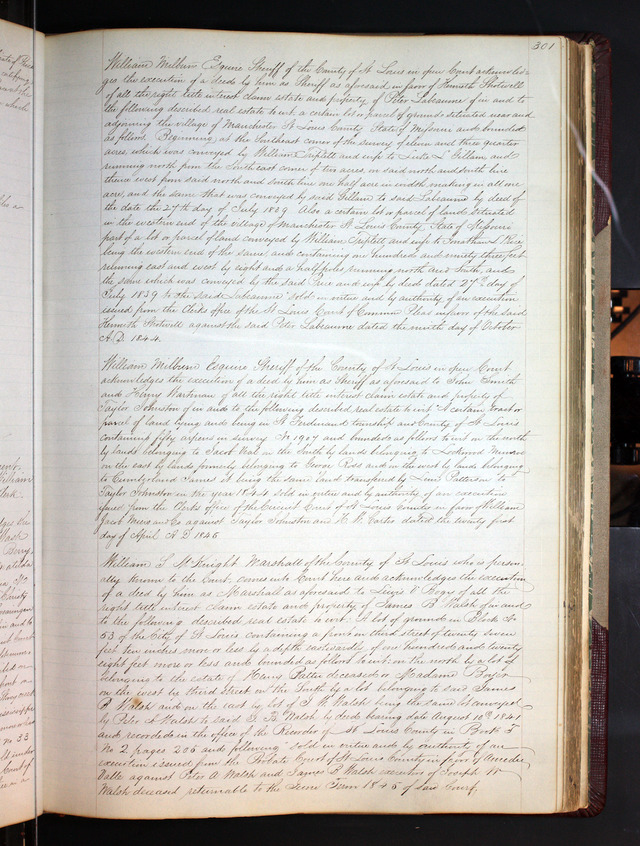 301
William Milburn Esquire Sheriff of the County of St Louis in open Court acknowled-
ges the execution of a deed by him as Sheriff as aforesaid in favor of Hemsth
of all the right title interest claim estate and property of Peter Labeaume of in and to
the following described real estate to wit. a certain lot or parcel of ground situated near and
adjoining the village of Manchester St Louis County State of Missouri and bounded
as follows Beginning at the Southeast corner of the survey of eleven and three quarter
acres which was conveyed by William Triplett and wife to L Gillam and
running north from the Southeast corner of ten acres on said north and south line
thence west from said north and south line one half acre in width making in all one
acre, and the same that was conveyed by said Gillam to said Labeaume by deed of
the date the 27th day of July 1839 Also a certain lot or parcel of land situated
in the western end of the village of Manchester St Louis County State of Missouri
part of a lot or parcel of land conveyed by William Triplett and wife to Jonathan L Price
being the western end of the same and containing one hundred and ninety three feet
running east and west by eight and a half poles running north and South, and
the same which was conveyed by the said Price and wife by deed dated 27th day of
July 1839 to the said Labeaume sold in virtue and by authority of an execution
issued from the Clerks office of the St Louis Court of Common Pleas in favor of the said
against the said Peter Labeaume dated the ninth day of October
A.D. 1844.
William Milburn Esquire Sheriff of the County of St Louis in open Court
acknowledges the execution of a deed by him as Sheriff as aforesaid to John Smith
and Henry Harkman of all the right title interest claim estate and property of
Taylor Johnston of in and to the following described real estate to wit A certain tract or
parcel of land lying and being in St Ferdinand township and County of St Louis
containing fifty arpens in survey No 1907 and bounded as follows to wit on the north
by lands belonging to Jacob Veal on the South by lands belonging to Lockwood
on the east by lands formerly belonging to George Ross and on the west by lands belonging
to Cumberland James it being the same land transfered by Linus Patterson to
Taylor Johnston in the year 1844 sold in virtue and by authority of an execution
issued from the Clerks office of the Circuit Court of St Louis County in favor of William
Jacob and Co against Taylor Johnston and H W Carter dated the twenty first
day of April A D 1845
William S McKnight Marshall of the County of St Louis who is person-
ally known to the Court, comes into Court here and acknowledges the execution
of a deed by him as Marshall as aforesaid to Lewis V Bogy of all the
right title interest claim estate and property of James B Walsh of in and
to the following described real estate to wit. A lot of ground in Block No
53 of the City of St Louis containing a front on third street of twenty seven
feet ten inches more or less by a depth eastwardly of one hundred and twenty
eight feet more or less and bounded as follows to wit: on the north by a lot of
belonging to the estate of Henry Patter deceased or Madame
on the west by third street on the South by a lot belonging to said James
B Walsh and on the east by lot of J B Walsh being the same lot conveyed
by Peter A Walsh to said J. B. Walsh by deed bearing date August 10th 1841
and recorded in the office of the Recorder of St Louis County in Book T
No 2 pages 206 and following sold in virtue and by authority of an
execution issued from the Probate Court of St Louis County in favor of Amedee
Valle against Peter A Walsh and James B Walsh executors of Joseph W
Walsh deceased returnable to the June Term 1845 of said Court.